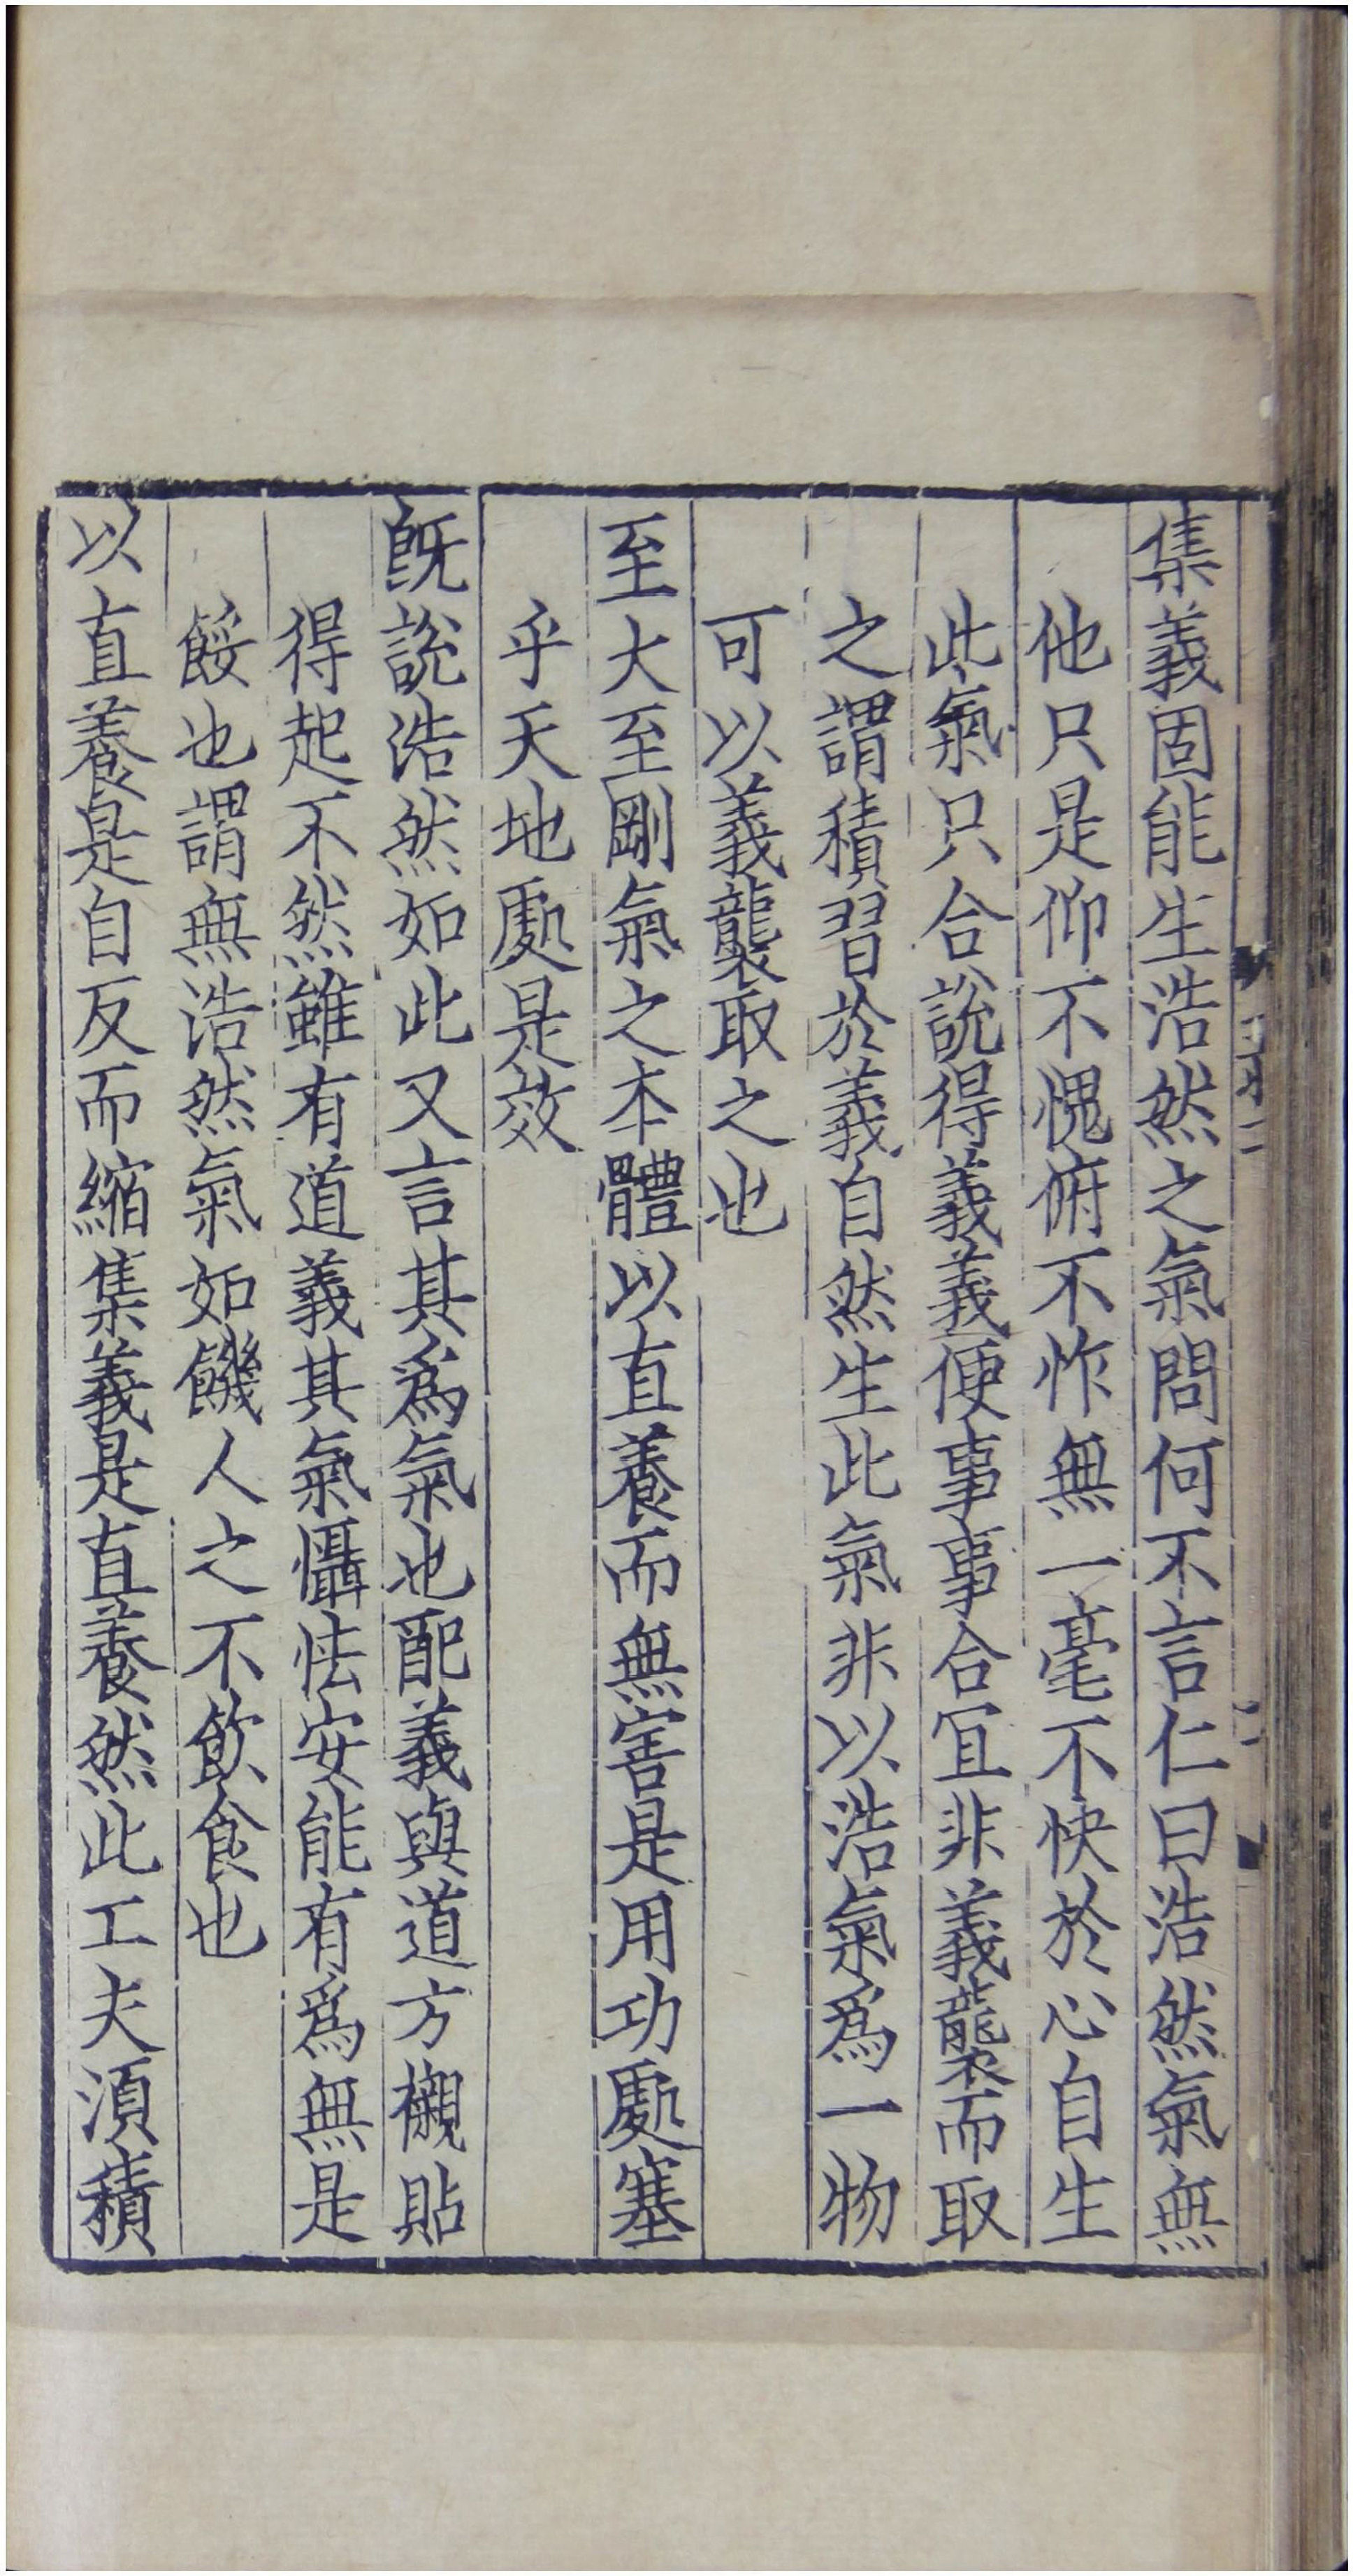 集義固能生浩然之氣問何不言仁曰浩然氣無
他只是仰不愧俯不怍無一毫不快於心自生
此氣只合說得義義便事事合宜非義襲而取
之謂積習於義自然生此氣非以浩氣爲一物
可以義襲取之也
至大至剛氣之本體以直養而無害是用功處塞
乎天地處是效
旣說浩然如此又言其爲氣也配義與道方襯貼
得起不然雖有道義其氣懾怯安能有爲無是
餒也謂無浩然氣如饑人之不飲食也
以直養是自反而縮集義是直養然此工夫須積